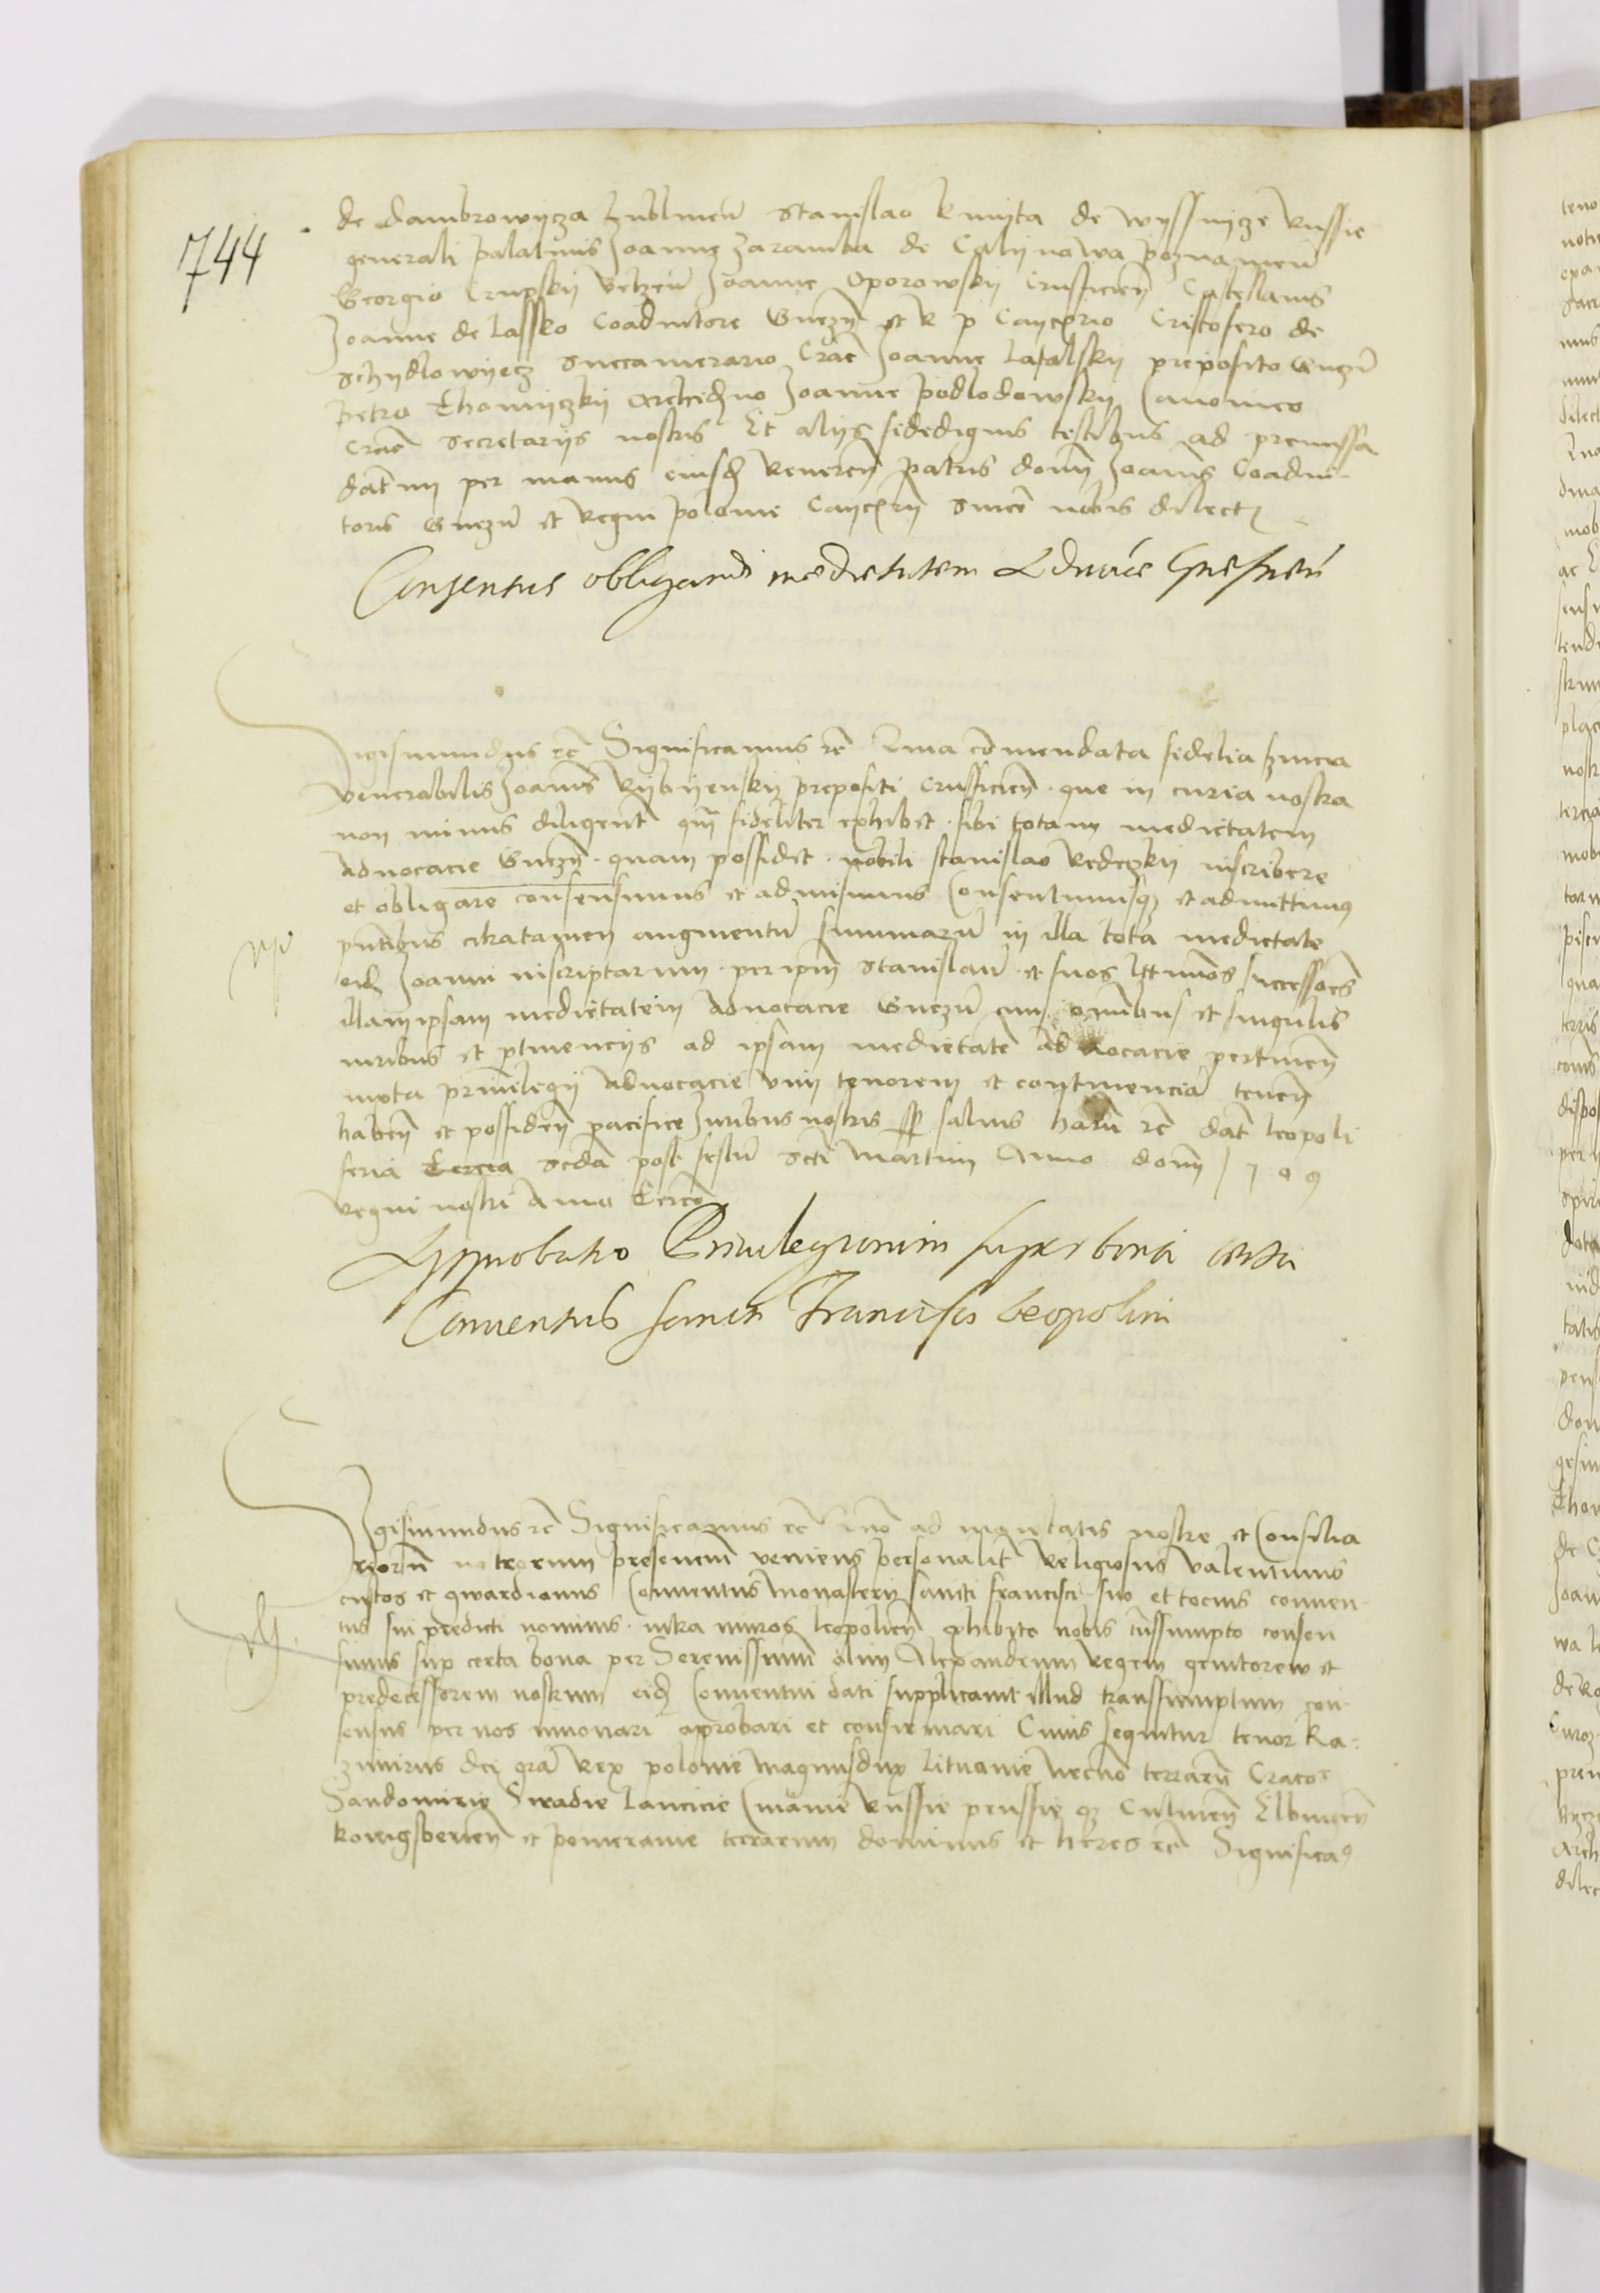 744
de Dambrowycza Lublineñ Stanislao Kmyta de Wyssnycze Russie
generali palatinis Joanne Zaramba de Calynowa Poznanieñ
Georgio Crupskij Belzeñ Joanne Oporowskij Crusficieñ Castellanis
Joanne de Lassko Coadiutore Gnezñ et R p Cancքrio Cristofero de
Schydlowyecz Succamerario Crac̃ Joanne Latalskij preposito Gnezñ
Petro Thomyczkij Archidno Joanne Podlodowskij Canonico
Crac̃ Secretariis nostris Et aliis fidedignis testibus ad premissa
dat̃ per manus eiusdę Reveren̄ patris domī Joannis Coadiu-
toris Gnezñ et Regni Polonie Cancքrij sincē nobis dilecti
Consensus obligandi medietatem Aduocãe Gnesneñ
Sigismundus rc̃ Significamus rc̃ Qma cõmendata fidelia seruicia
venerabilis Joannis Rybyenskij prepositi Crusficieñ que in curia nostra
non minus diligent̃ qm̃ fideliter exhibet sibi totam medietatem
Advocacie Gnezñ quam possidet nobili Stanislao Redeczkij inscribere
et obligare consensimus et admisimus Consentimusq et admittimus
pñtibus citra tamen augmentũ summarũ in illa tota medietate
eidę Joanni inscriptarum per ipm̃ Stanislaũ et suos ltt̃imos successores
illam ipsam medietatem Advocacie Gnezñ cum omnibus et singulis
iuribus et ptinenciis ad ipsam medietatē advocacie pertineñ
iuxta privilegij Advocacie vim tenorem et continenciã teneñ
habeñ et possideñ pacifice Iuribus nostris sp salvis harũ rc̃ dat̃ Leopoli
feria Tercia scda post festũ scti Martini Anno domī 1509
Regni nostri Anno Tercio
Approbatio Priuilegiorum super bona certa
Conuentus sancti Francisci Leopolien
Sigismundus rc̃ Significamus rc̃ Qmo ad maiestatis nostre et Consilia
riorũ nostrorum presenciã veniens personalit̃ Religiosus Valentinus
custos et gwardianus Conuentus Monasterij sancti Francisci suo et tocius conuen
tus sui predicti nominis intra muros Leopolieñ exhibito nobis tr̃nssumpto consen
sus sup certa bona per Serenissimũ olim Alexandrum Regem genitorem et
predecessorem nostrum eidę Conventui dati supplicavit illud transsumptum con
sensus per nos innouari aprobari et confirmari Cuius sequitur tenor Ka
zimirus dei grã Rex polonie magnusdux Lituanie necnõ terrarũ Craco
Sandomirie Siradie Lancicie Cuiauie Russie prussie q Culmeñ Elbinceñ
konigsbergeñ et pomeranie terrarum dominus et heres rc̃ Significa